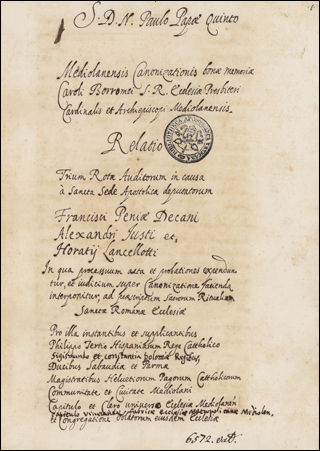 S. D. N. Paulo Papæ Quinto
Mediolanensis Canonizationis bonæ memoriæ
Caroli Borromei S. R. Ecclesiæ Presbiteri
Cardinalis et Archiepiscopi Mediolanensis.
Relatio
Trium Rotæ Auditorum in causa
à Sancta Sede Apostolica deputatorum
Francisci Peniæ Decani
Alexandri Justi et
Horatij Lancellotti
In qua processuum acta et probationes expendun
tur, et iudicium super Canonizatione facienda
interponitur, ad præscriptum Sacrorum Ritualium
Sanctæ Romanæ Ecclesiæ
Pro illa instantibus et supplicantibus
Philippo Tertio Hispaniarum Rege Catholico
Sigismundo et Constantia Poloniæ Regibus,
Ducibus Sabaudiæ et Parmæ
Magistratibus Helvetiorum Pagorum Catholicorum
Communitate, et Civitate Mediolani
Capitulo et Clero universo Ecclesiæ Mediolanen
Capitulo fabricæ Ecclesiæ Metropolitanæ Mediolan.
et Congregatione Oblatorum eiusdem Ecclesiæ